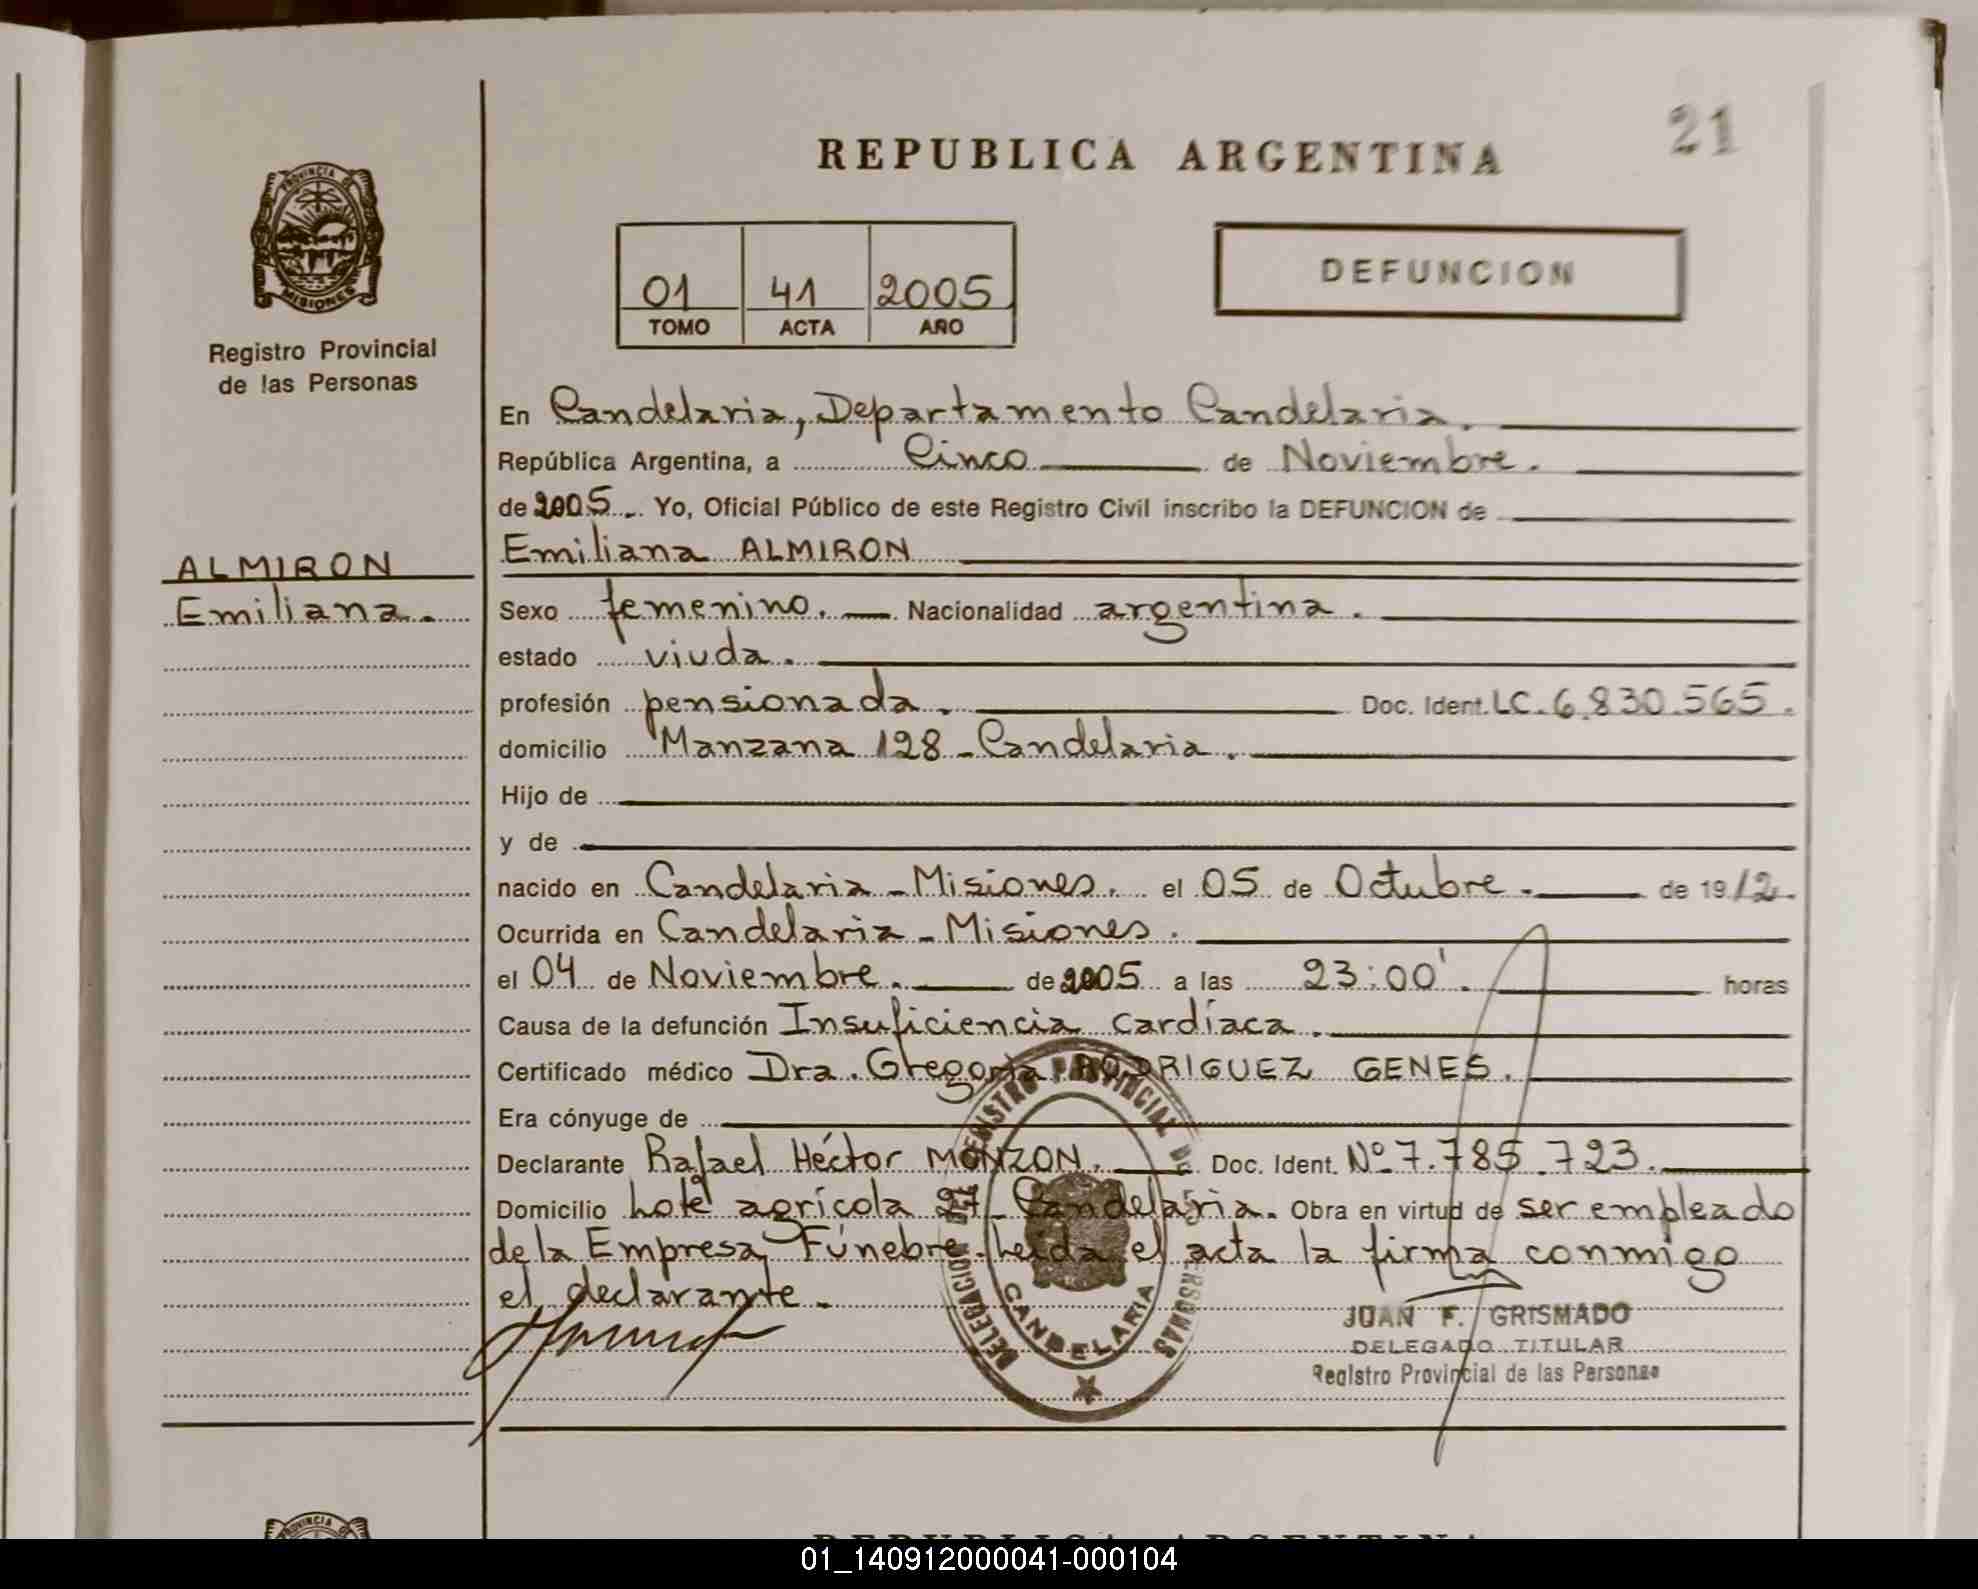 21
REPUBLICA ARGENTINA
PROVINCIA DE
MISIONES
Registro Provincial
de las Personas
01 41 2005
TOMO ACTA AÑO
DEFUNCION
ALMIRON
Emiliana.
En Candelaria, Departamento Candelaria.
República Argentina, a Cinco de Noviembre.
de 2005. Yo, Oficial Público de este Registro Civil inscribo la DEFUNCION de
Emiliana ALMIRON
Sexo femenino. Nacionalidad argentina.
estado viuda.
profesión pensionada. Doc. Ident. LC. 6.830.565.
domicilio Manzana 128 - Candelaria.
Hijo de
y de
nacido en Candelaria - Misiones. el 05 de Octubre. de 1912.
Ocurrida en Candelaria - Misiones.
el 04 de Noviembre. de 2005 a las 23:00'. horas
Causa de la defunción Insuficiencia cardíaca.
Certificado médico Dra. Gregoria RODRIGUEZ GENES.
Era cónyuge de
Declarante Rafael Héctor MONZON. Doc. Ident. Nº 7.785.723.
Domicilio Lote agrícola 27 - Candelaria. Obra en virtud de ser empleado
de la Empresa Fúnebre. Leída el acta la firma conmigo
el declarante.
DELEGACION DEL REGISTRO PROVINCIAL DE LAS PERSONAS
CANDELARIA
JUAN F. GRISMADO
DELEGADO TITULAR
Registro Provincial de las Personas
PROVINCIA DE
REPUBLICA ARGENTINA
01_140912000041-000104